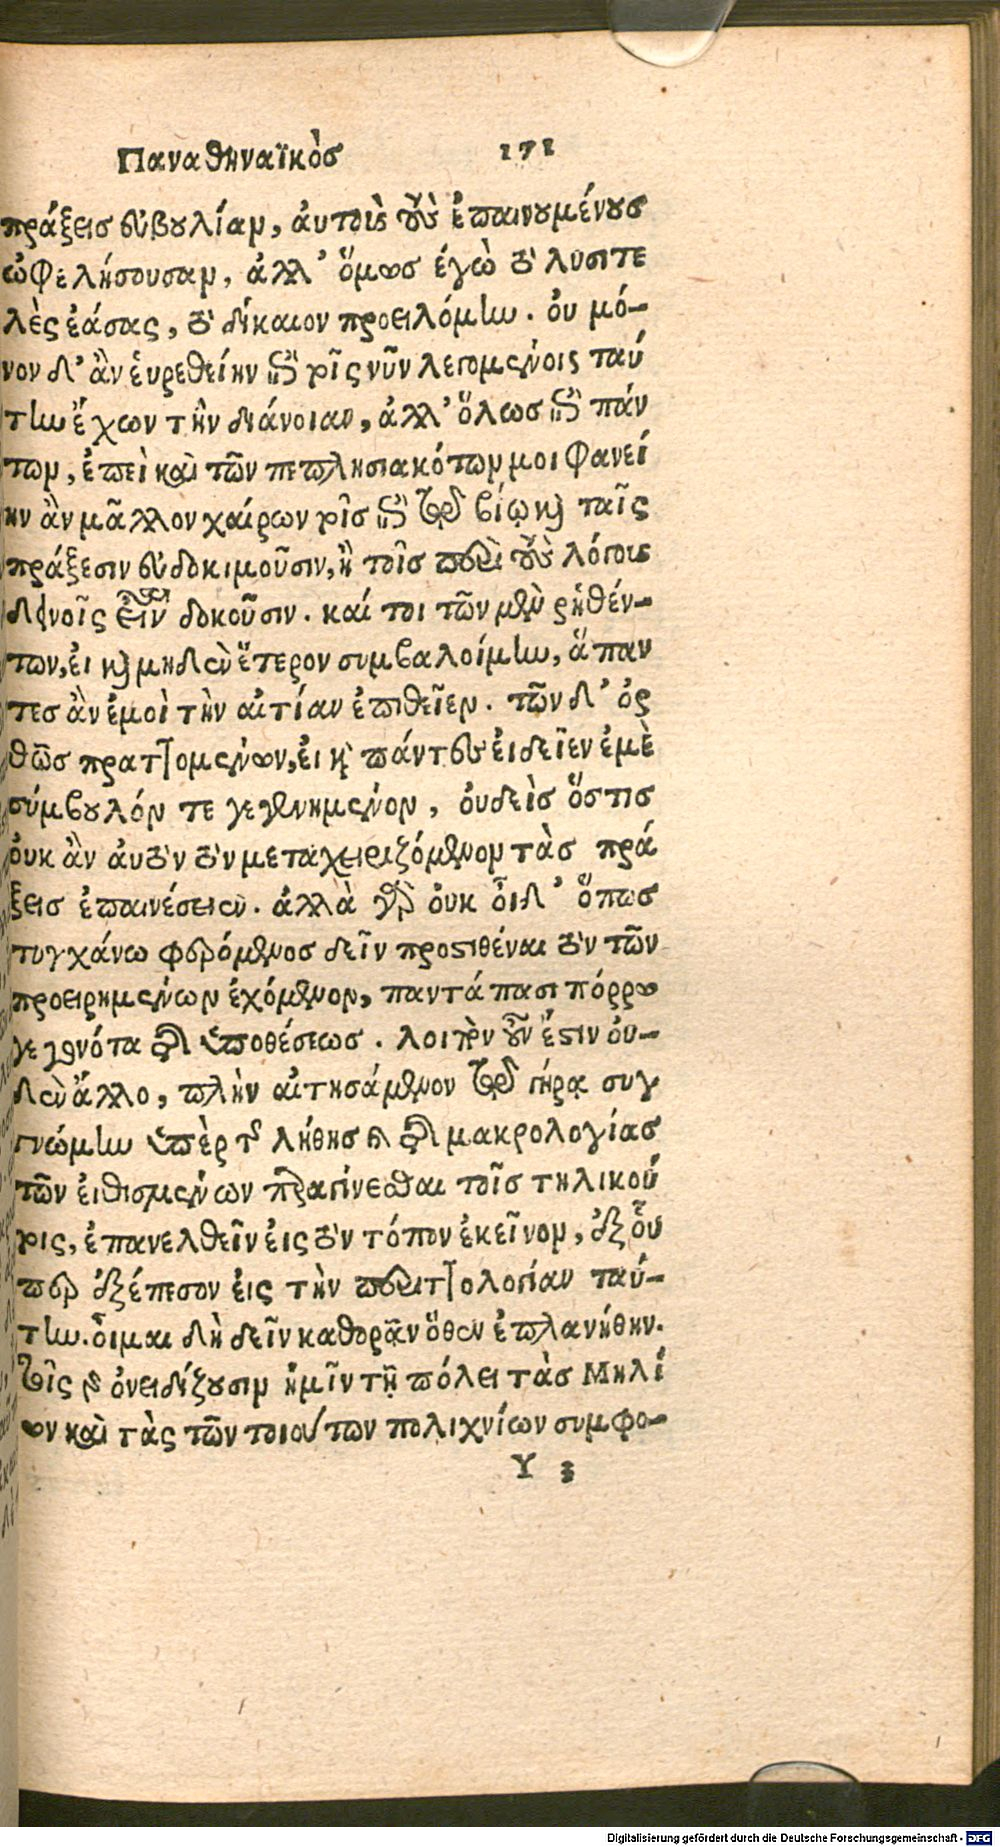 Παναθηναϊκὸσ 171
πράξεισ ἐυβουλίαν, ἀυτοὺσ τοὺσ ἐπαινουμένουσ
ὠφελήσουσαν, ἀλλ’ ὅμωσ ἐγὼ τὸ λυσιτε
λὲς ἐάσας, τὸ δίκαιον προειλόμην. ὀυ μό-
νον δ’ ἂν ἑυρεθείην ἐπὶ τοῖς νῦν λεγομένοις ταύ
την ἔχων τὴν διάνοιαν, ἀλλ’ ὅλωσ ἐπὶ πάν
των, ἐπεὶ καὶ τῶν πεπλησιακότων μοι φανεί
ην ἂν μᾶλλον χαίρων τοῖσ ἐπὶ τῷ βίῳ καὶ ταῖς
πράξεσιν ἐυδοκιμοῦσιν, ἢ τοῖσ περὶ τοὺσ λόγουσ
δεινοῖς εἶναι δοκοῦσιν. καί τοι τῶν μὲν ῥηθέν-
των, ἐι καὶ μηδὲν ἕτερον συμβαλοίμην, ἅπαν
τεσ ἂν ἐμοὶ τὴν αἰτίαν ἐπιθεῖεν. τῶν δ’ ὀρ
θῶσ πραττομένων, ἐι καὶ πάντεσ ἐιδεῖεν ἐμὲ
σύμβουλόν τε γεγενημένον, ὀυδεὶσ ὅστισ
ὀυκ ἂν ἀυτὸν τὸν μεταχειριζόμενον τὰσ πρά
ξεισ ἐπαινέσειεν. ἀλλὰ γὰρ ὀυκ ὂιδ’ ὅπωσ
τυγχάνω φερόμενοσ δεῖν προστιθέναι τὸν τῶν
προειρημένων ἐχόμενον, παντάπασι πόρρω
γεγονότα τῆσ ὑποθέσεωσ. λοιπὸν οὖν ἐστιν ὀυ-
δὲν ἄλλο, πλὴν αἰτησάμενον τῷ γήρᾳ συγ
γνώμην ὑπὲρ τῆσ λήθησ καὶ τῆσ μακρολογίασ
τῶν ἐιθισμένων παραγίνεσθαι τοῖσ τηλικού
τοις, ἐπανελθεῖν ἐις τὸν τόπον ἐκεῖνον, ἐξ οὗ
περ ἐξέπεσον ἐις τὴν περιττολογίαν ταύ-
την. οἶμαι δὴ δεῖν καθορᾶν ὅθεν ἐπλανήθην.
τοῖς γὰρ ὀνειδίζουσιν ἡμῖν τῇ πόλει τὰσ Μηλί
ων καὶ τὰς τῶν τοιούτων πολιχνίων συμφο-
Υ 3
Digitalisierung gefördert durch die Deutsche Forschungsgemeinschaft - DFG